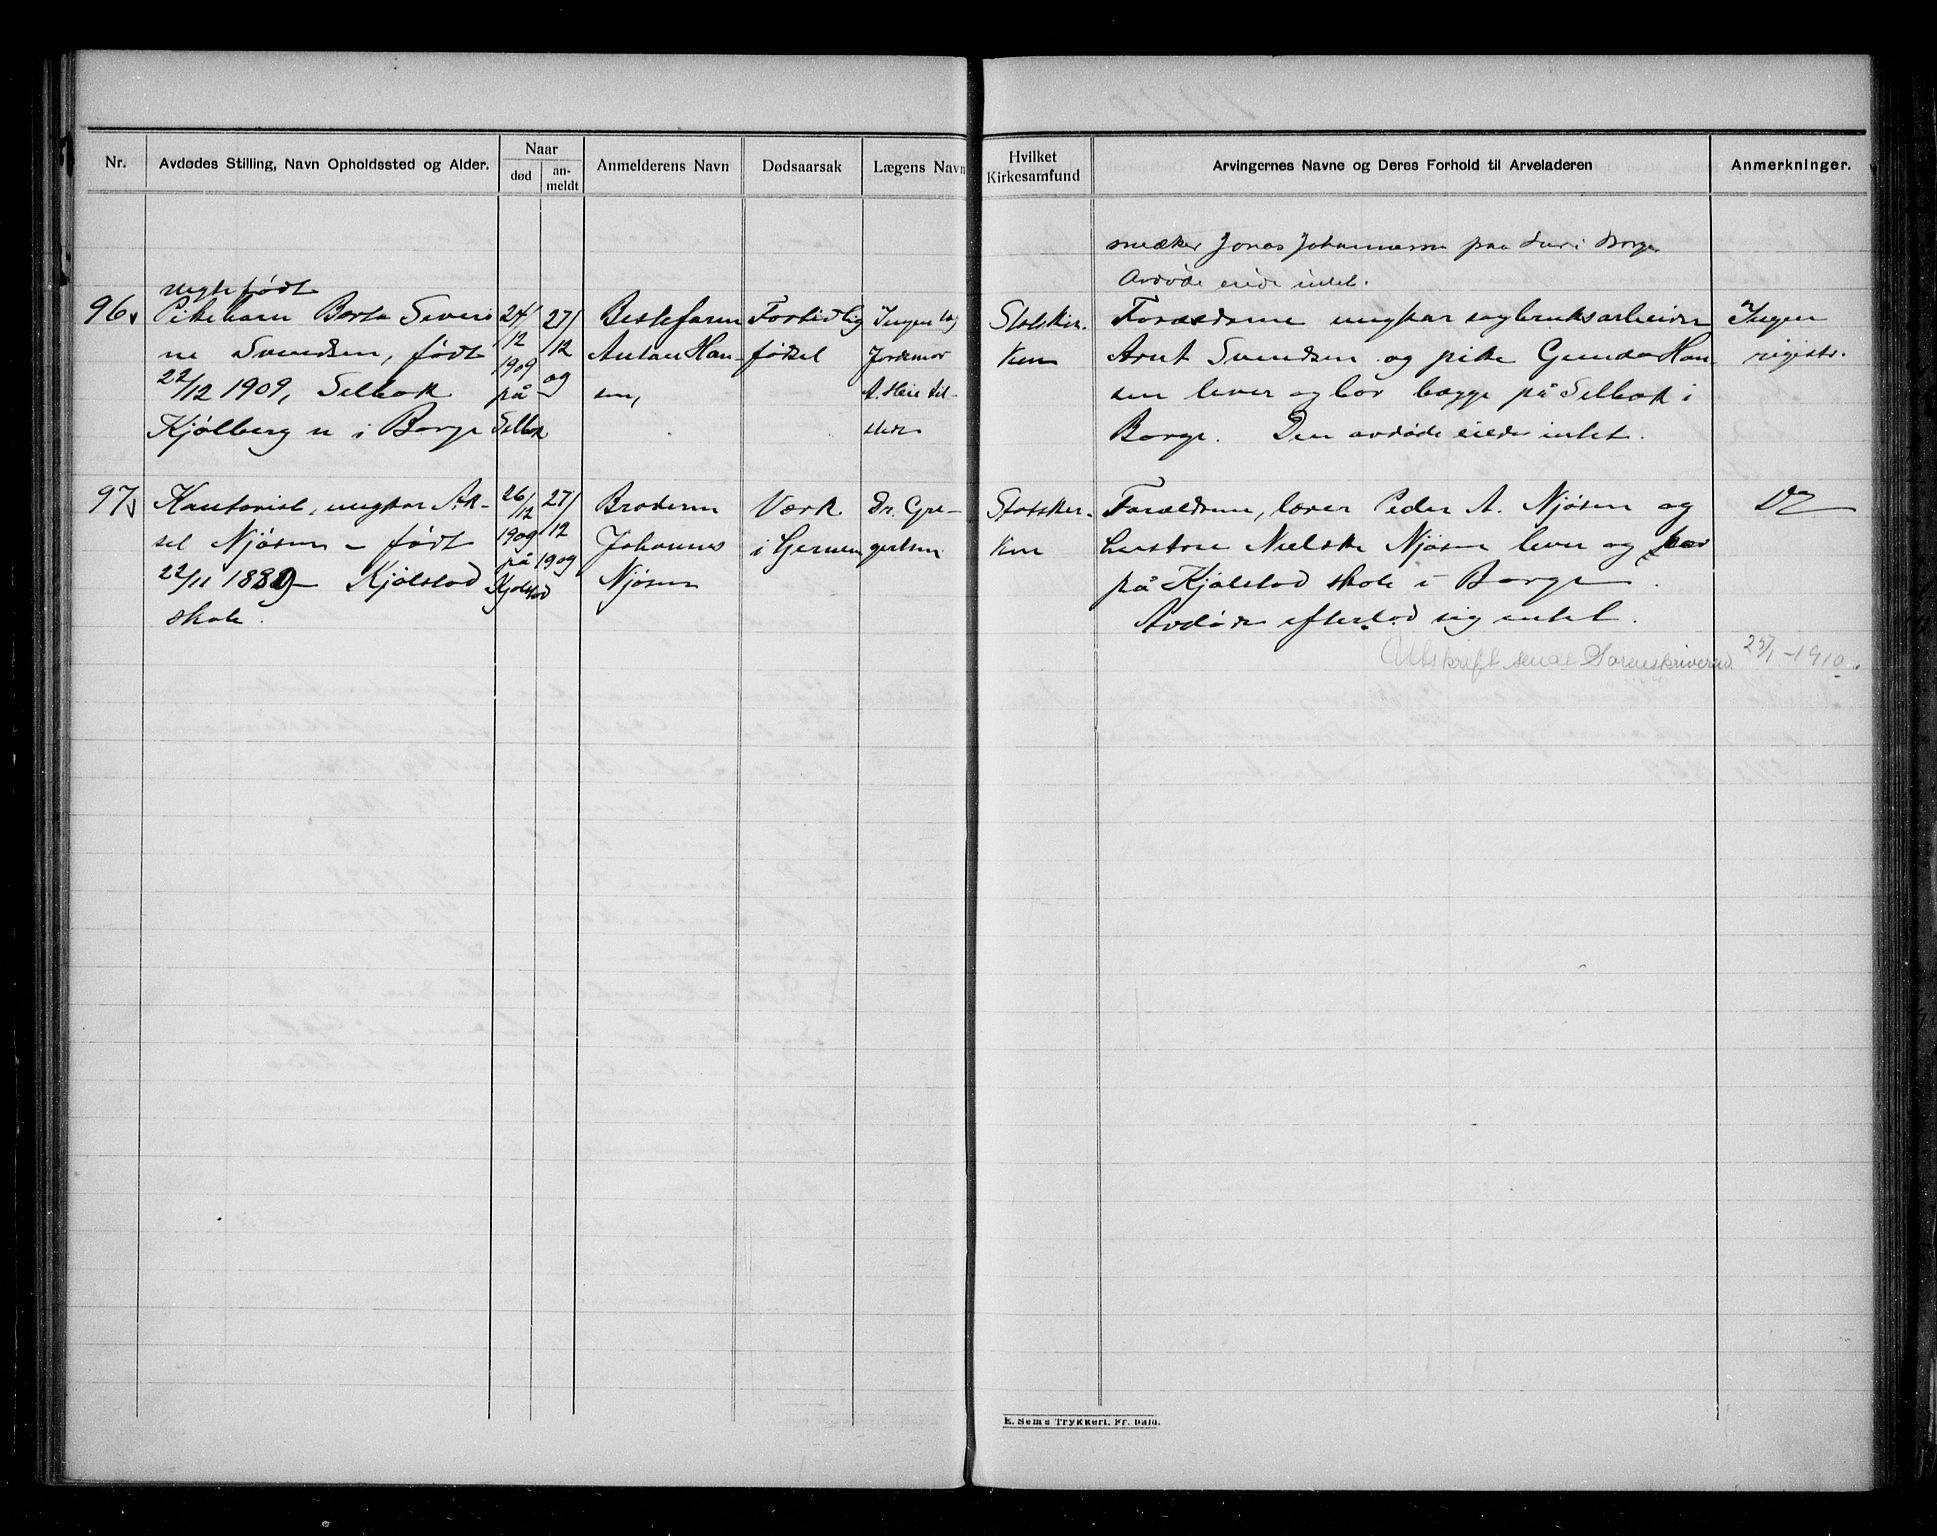 Nr.
Avdødes Stilling, Navn Opholdssted og Alder.
Naar
død
an-
meldt
Anmelderens Navn
Dødsaarsak
Lægens Navn
Hvilket
Kirkesamfund
Arvingernes Navne og Deres Forhold til Arveladeren
Anmerkninger.
Jonas Johannessen paa i Borge
Avdøde eiede intet.
96,
uegtefødt
Pikebarn Borta Severi
ne Svendsen, født
22/12 1909, Selbak
Kjølberg u i Borge
24/
12
1909
på
Selbak
27/
12
og
Bestefaren
Anton Han-
sen,
Fortidlig
fødsel
Ingen læg
Jordemor
A. Heie til-
stede
Statskir-
ken
Forældrene ungkar sagbruksarbeider
Arnt Svendsen og pike Gunda Han-
sen lever og bor bægge på Selbak i
Borge. Den avdøde eiede intet.
Ingen
registr.
97,
Kontorist, ungkar Ak-
sel Njøsen – født
22/11 1889 – Kjølstad
skole.
26/
12
1909
på
Kjølstad
27/
12
1909
Broderen
Johannes
Njøsen
Værk
i Hjernen
Dr. Gre-
gertsen
Statskir-
ken
Forældrene, lærer Peder A. Njøsen og
hustru Nielske Njøsen lever og bor
på Kjølstad skole i Borge.
Avdøde efterlod sig intet.
Do
Utskrift sendt Sorenskriveren 25/1 – 1910.
E. Sems Trykkeri, Fr.hald.